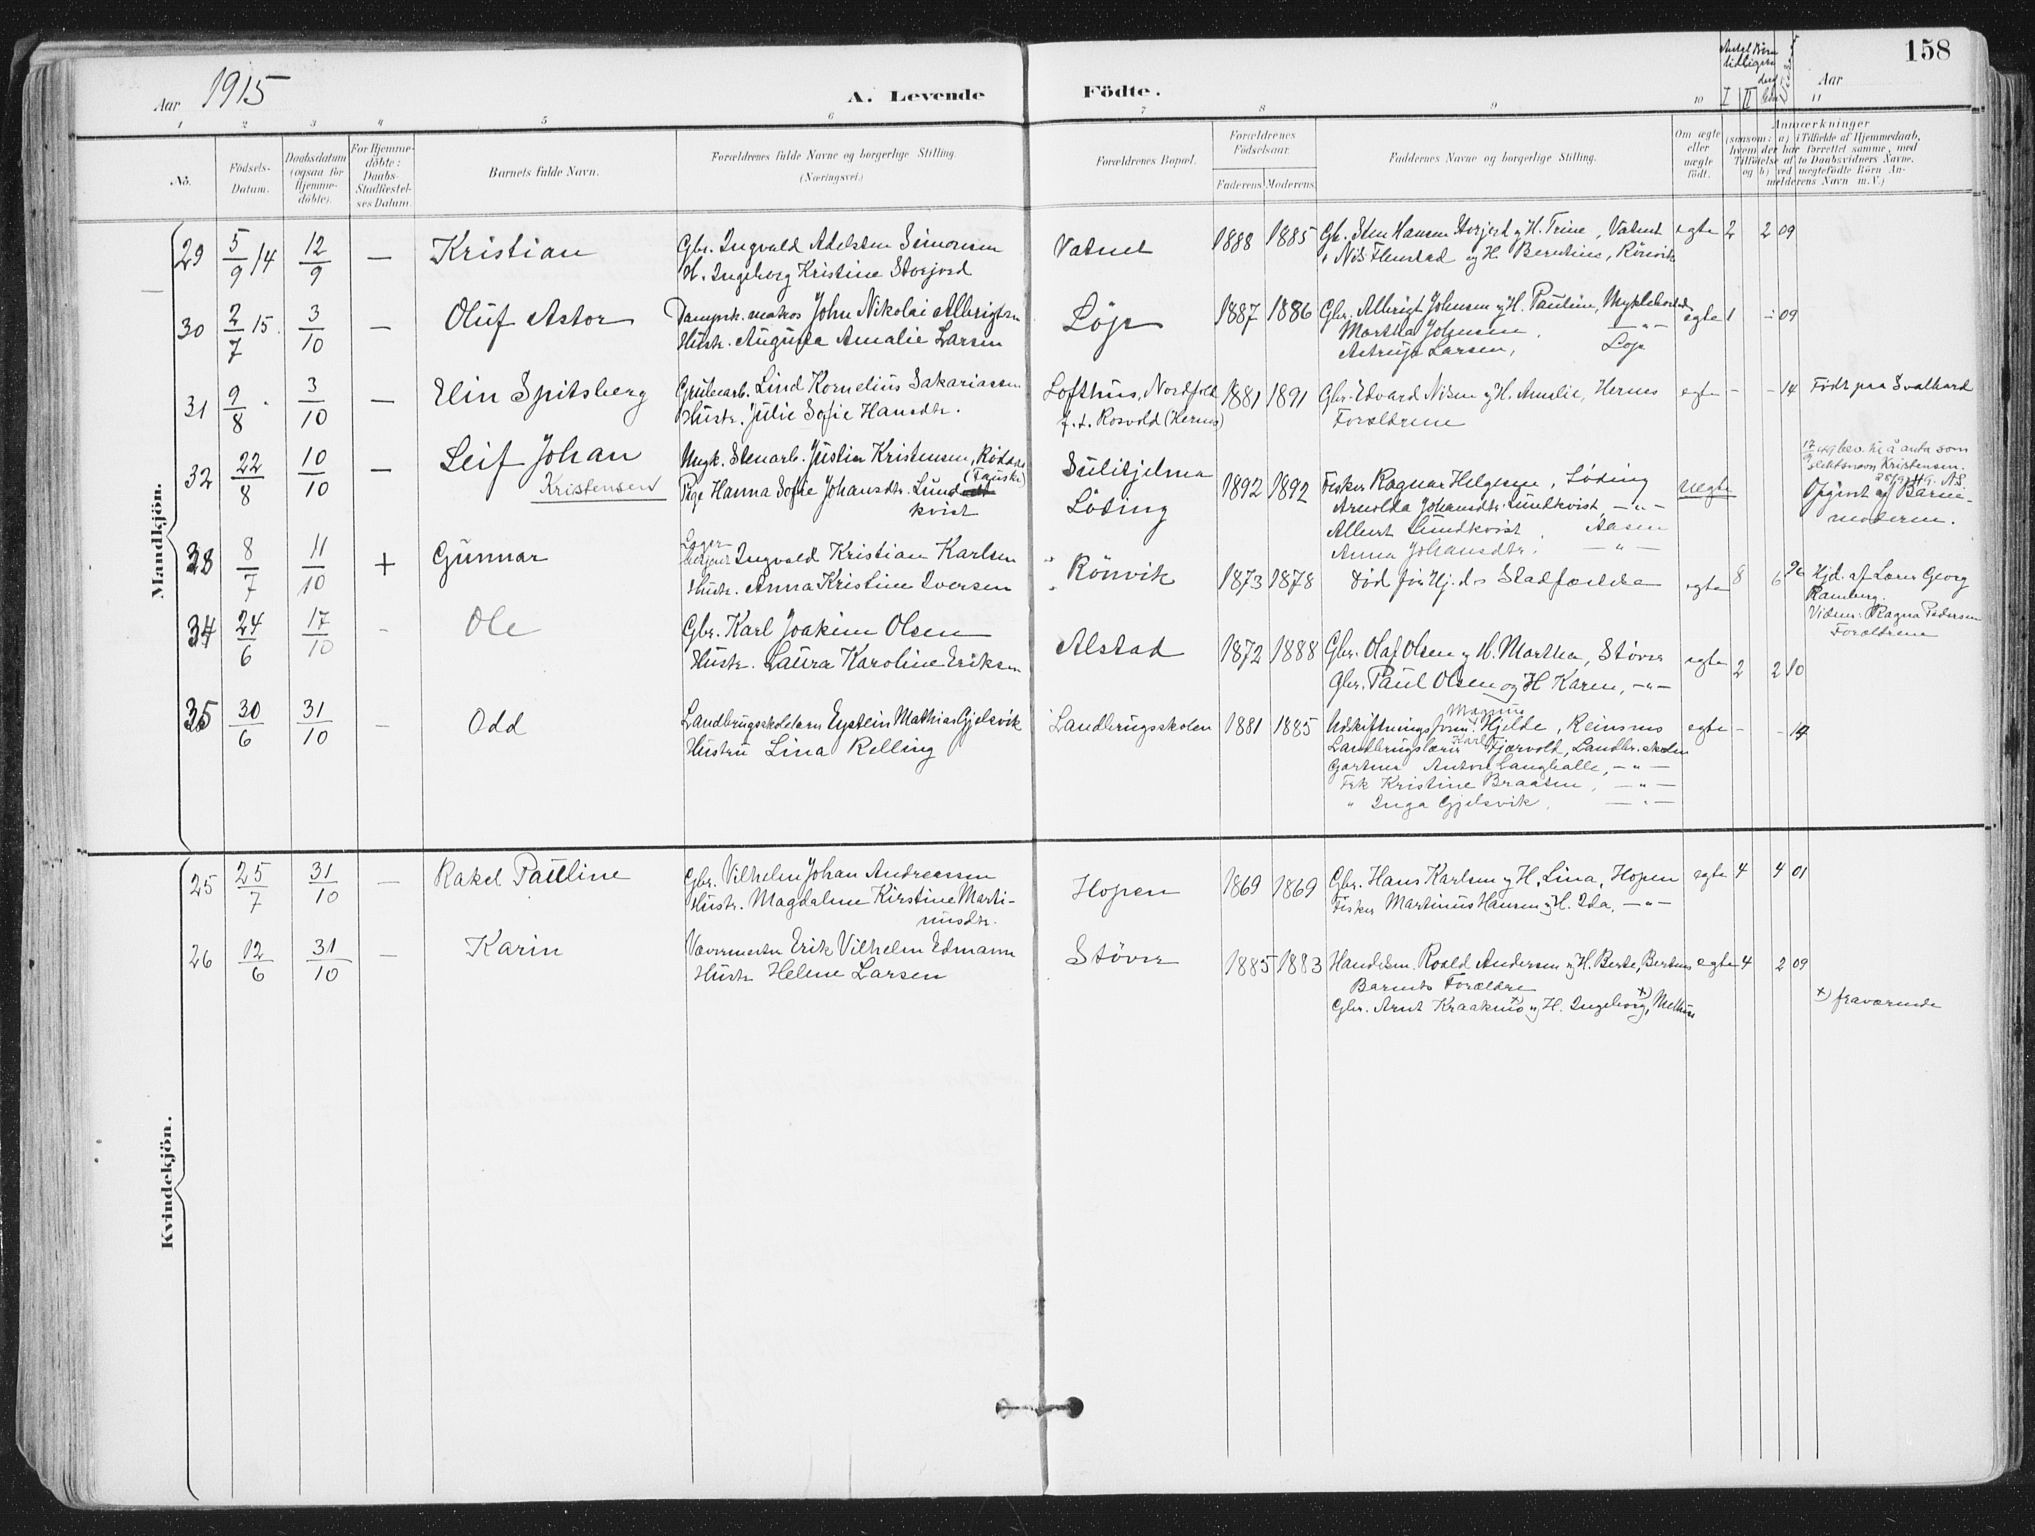 158
Aar 1915
A. Levende Födte.
Aar
1 2 3 4 5 6 7 8 9 10 I II 11
No.
Födsels-Datum.
Daabsdatum (ogsaa for Hjemmedöbte).
For Hjemmedöbte: Daabs-Stadfestelses Datum.
Barnets fulde Navn.
Forældrenes fulde Navne og borgerlige Stilling. (Næringsvei.)
Forældrenes Bopæl.
Forældrenes Födselsaar.
Faderens. Moderens.
Faddernes Navne og borgerlige Stilling.
Om ægte eller uægte født.
Anmærkninger
(saasom: a) i Tilfælde af Hjemmedaab, hvem der har forrettet samme, med Tilföielse af to Daabsvidners Navne. og b) ved uægtefödte Börn Anmelderens Navn m. V.)
Mandkjön.
29 5/9 14 12/9 — Kristian
Gbr. Ingvald Adelsten Simonsen
H. Ingeborg Kristine Storjord
Vatnet 1888 1885
Gbr. Sten Hansen Storjord og H. Trine, Vatnet
" Nils Flenstad og H. Berntine, Rönvik
egte 2 2 09
30 2/7 15. 3/10 — Oluf Astor
Dampsk. matros John Nikolai Albrigtsen
Hustr. Augusta Amalie Larsen
Löp 1887 1886
Gbr. Albrigt Johnsen og H. Pauline, Myklebostad
Martha Johnsen, — " —
Astrup Larsen, Löp
egte 1 - 09
31 9/8 3/10 — Elin Spitsberg
Grubearb. Lind Kornelius Sakariassen
Hustr. Julie Sofie Hansdtr.
Lofthus, Nordfold
f. t. Rosvold (Kernes)
1881 1891
Gbr. Edvard Nilsen og H. Amalie, Hernes
Forældrene
egte - - 14 Födt paa Svalbard
32 22/8 10/10 — Leif Johan
Kristensen
Ungk. Stenarb. Justin Kristensen, Rödaas
(Fauske)
Pige Hanna Sofie Johansdtr. Lund
kvist
Sulitjelma
Löding
1892 1892
Fisker Ragnar Helgesen, Löding
Arnolda Johansdtr. Lundkvist — " —
Albert Lundkvist, Aasen
Anna Johansdtr. — " —
uegte
Opgivet af Barnemoderen.
33 8/7 11/10 + Gunnar
Ingvald Kristian Karlsen
Hustr. Anna Kristine Iversen
Rönvik 1873 1878
Död för Hj. ds Stadfæstelse
egte 8 6 96
Hjd. af Lærer Georg
Ramberg.
Vidner: Ragna Pedersen
Forældrene
34 24/6 17/10 - Ole
Gbr. Karl Joakim Olsen
Hustr. Laura Karoline Eriksen
Alstad 1872 1888
Gbr. Olaf Olsen og H. Martha, Støver
Gbr. Paul Olsen og H Karen, — " —
egte 2 2 10
35 30/6 31/10 - Odd
Landbrugsskolelærer Eystein Mathias Gjelsvik
Hustru Lina Relling
Landbrugsskolen 1881 1885
Magnus
Udskiftningsform. Hjelde, Reinsnes
Landbrugslærer Karl Fjærvold, Landbr.skolen
Gartner Anton Langhalle, — " —
Frk Kristine Braaten, — " —
" Inga Gjelsvik, — " —
egte - - 14
Kvindekjön.
25 25/7 31/10 — Rakel Pauline
Gbr. Vilhelm Johan Andreassen
Hustr. Magdalene Kirstine Marti-
nusdtr.
Hopen 1869 1869
Gbr. Hans Karlsen og H. Lina, Hopen
Fisker Martinus Hansen og H. Ida, — " —
egte 4 4 01
26 12/6 31/10 — Karin
Vævermester Erik Vilhelm Edmann
Hustr Helene Larsen
Støver 1885 1883
Handelsm. Roald Andersen og H. Berte, Bertnes
Barnets Forældre
Gbr. Arnt Kraakmo +) og H. Ingeborg, +)
egte 4 2 09
+) fraværende